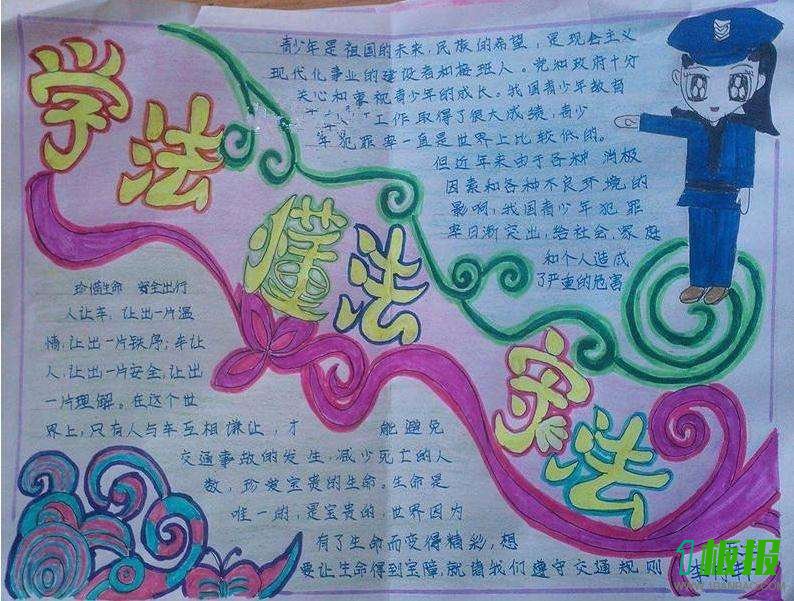 学法
懂法
守法
青少年是祖国的未来,民族的希望,是现会主义
现代化事业的建设者和接班人。党和政府十分
关心和重视青少年的成长。我国青少年教育
工作取得了很大成绩,青少
年犯罪率一直是世界上比较低的。
但近年来由于各种消极
因素和各种不良环境的
影响,我国青少年犯罪
率日渐突出,给社会,家庭
和个人造成
了严重的危害
珍惜生命 安全出行
人让车,让出一片温
情,让出一片秩序;车让
人,让出一片安全,让出
一片理解。在这个世
界上,只有人与车互相谦让,才 能避免
交通事故的发生,减少死亡的人
数,珍爱宝贵的生命。生命是
唯一的,是宝贵的,世界因为
有了生命而变得精彩,想
要让生命得到宝障,就请我们遵守交通规则
板报